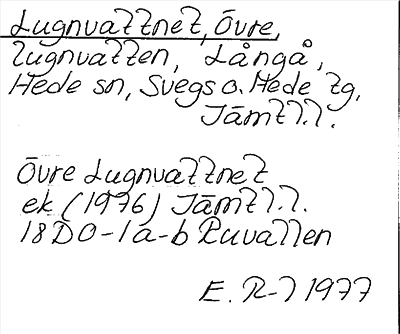 Lugnvattnet, Övre,
lugnvatten, Långå,
Hede sn, Svegs o. Hede tg,
Jämtl.l.
Övre Lugnvattnet
ek (1976) Jämtl.l.
18D0-1a-b Ruvallen
E. R-l 1977